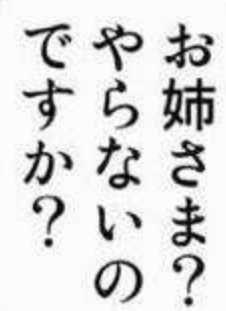 お姉さま?
やらないの
ですか?